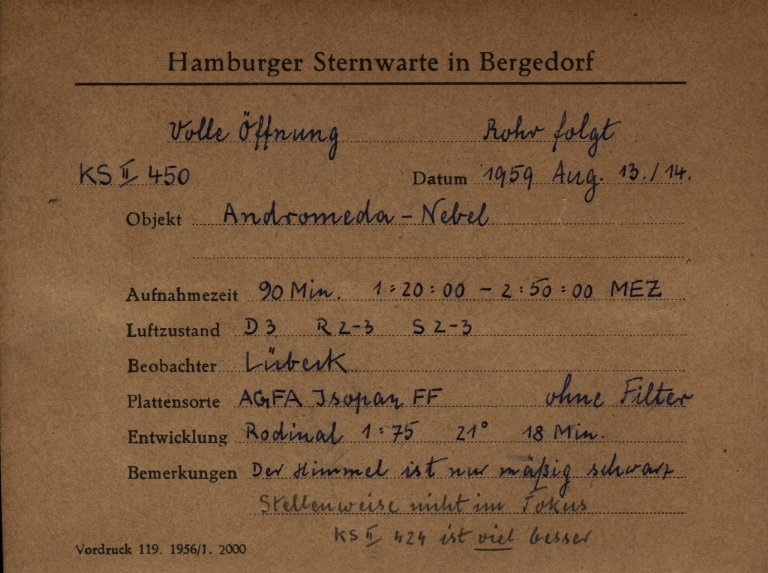 Hamburger Sternwarte in Bergedorf
Volle Öffnung Rohr folgt
KS II 450 Datum 1959 Aug. 13./14.
Objekt Andromeda-Nebel
Aufnahmezeit 90 Min. 1:20:00 - 2:50:00 MEZ
Luftzustand D3 R2-3 S2-3
Beobachter Lübeck
Plattensorte AGFA Isopan FF ohne Filter
Entwicklung Rodinal 1:75 21° 18 Min.
Bemerkungen Der Himmel ist nur mäßig schwarz
Stellenweise nicht im Fokus
KS II 424 ist viel besser
Vordruck 119. 1956/1. 2000